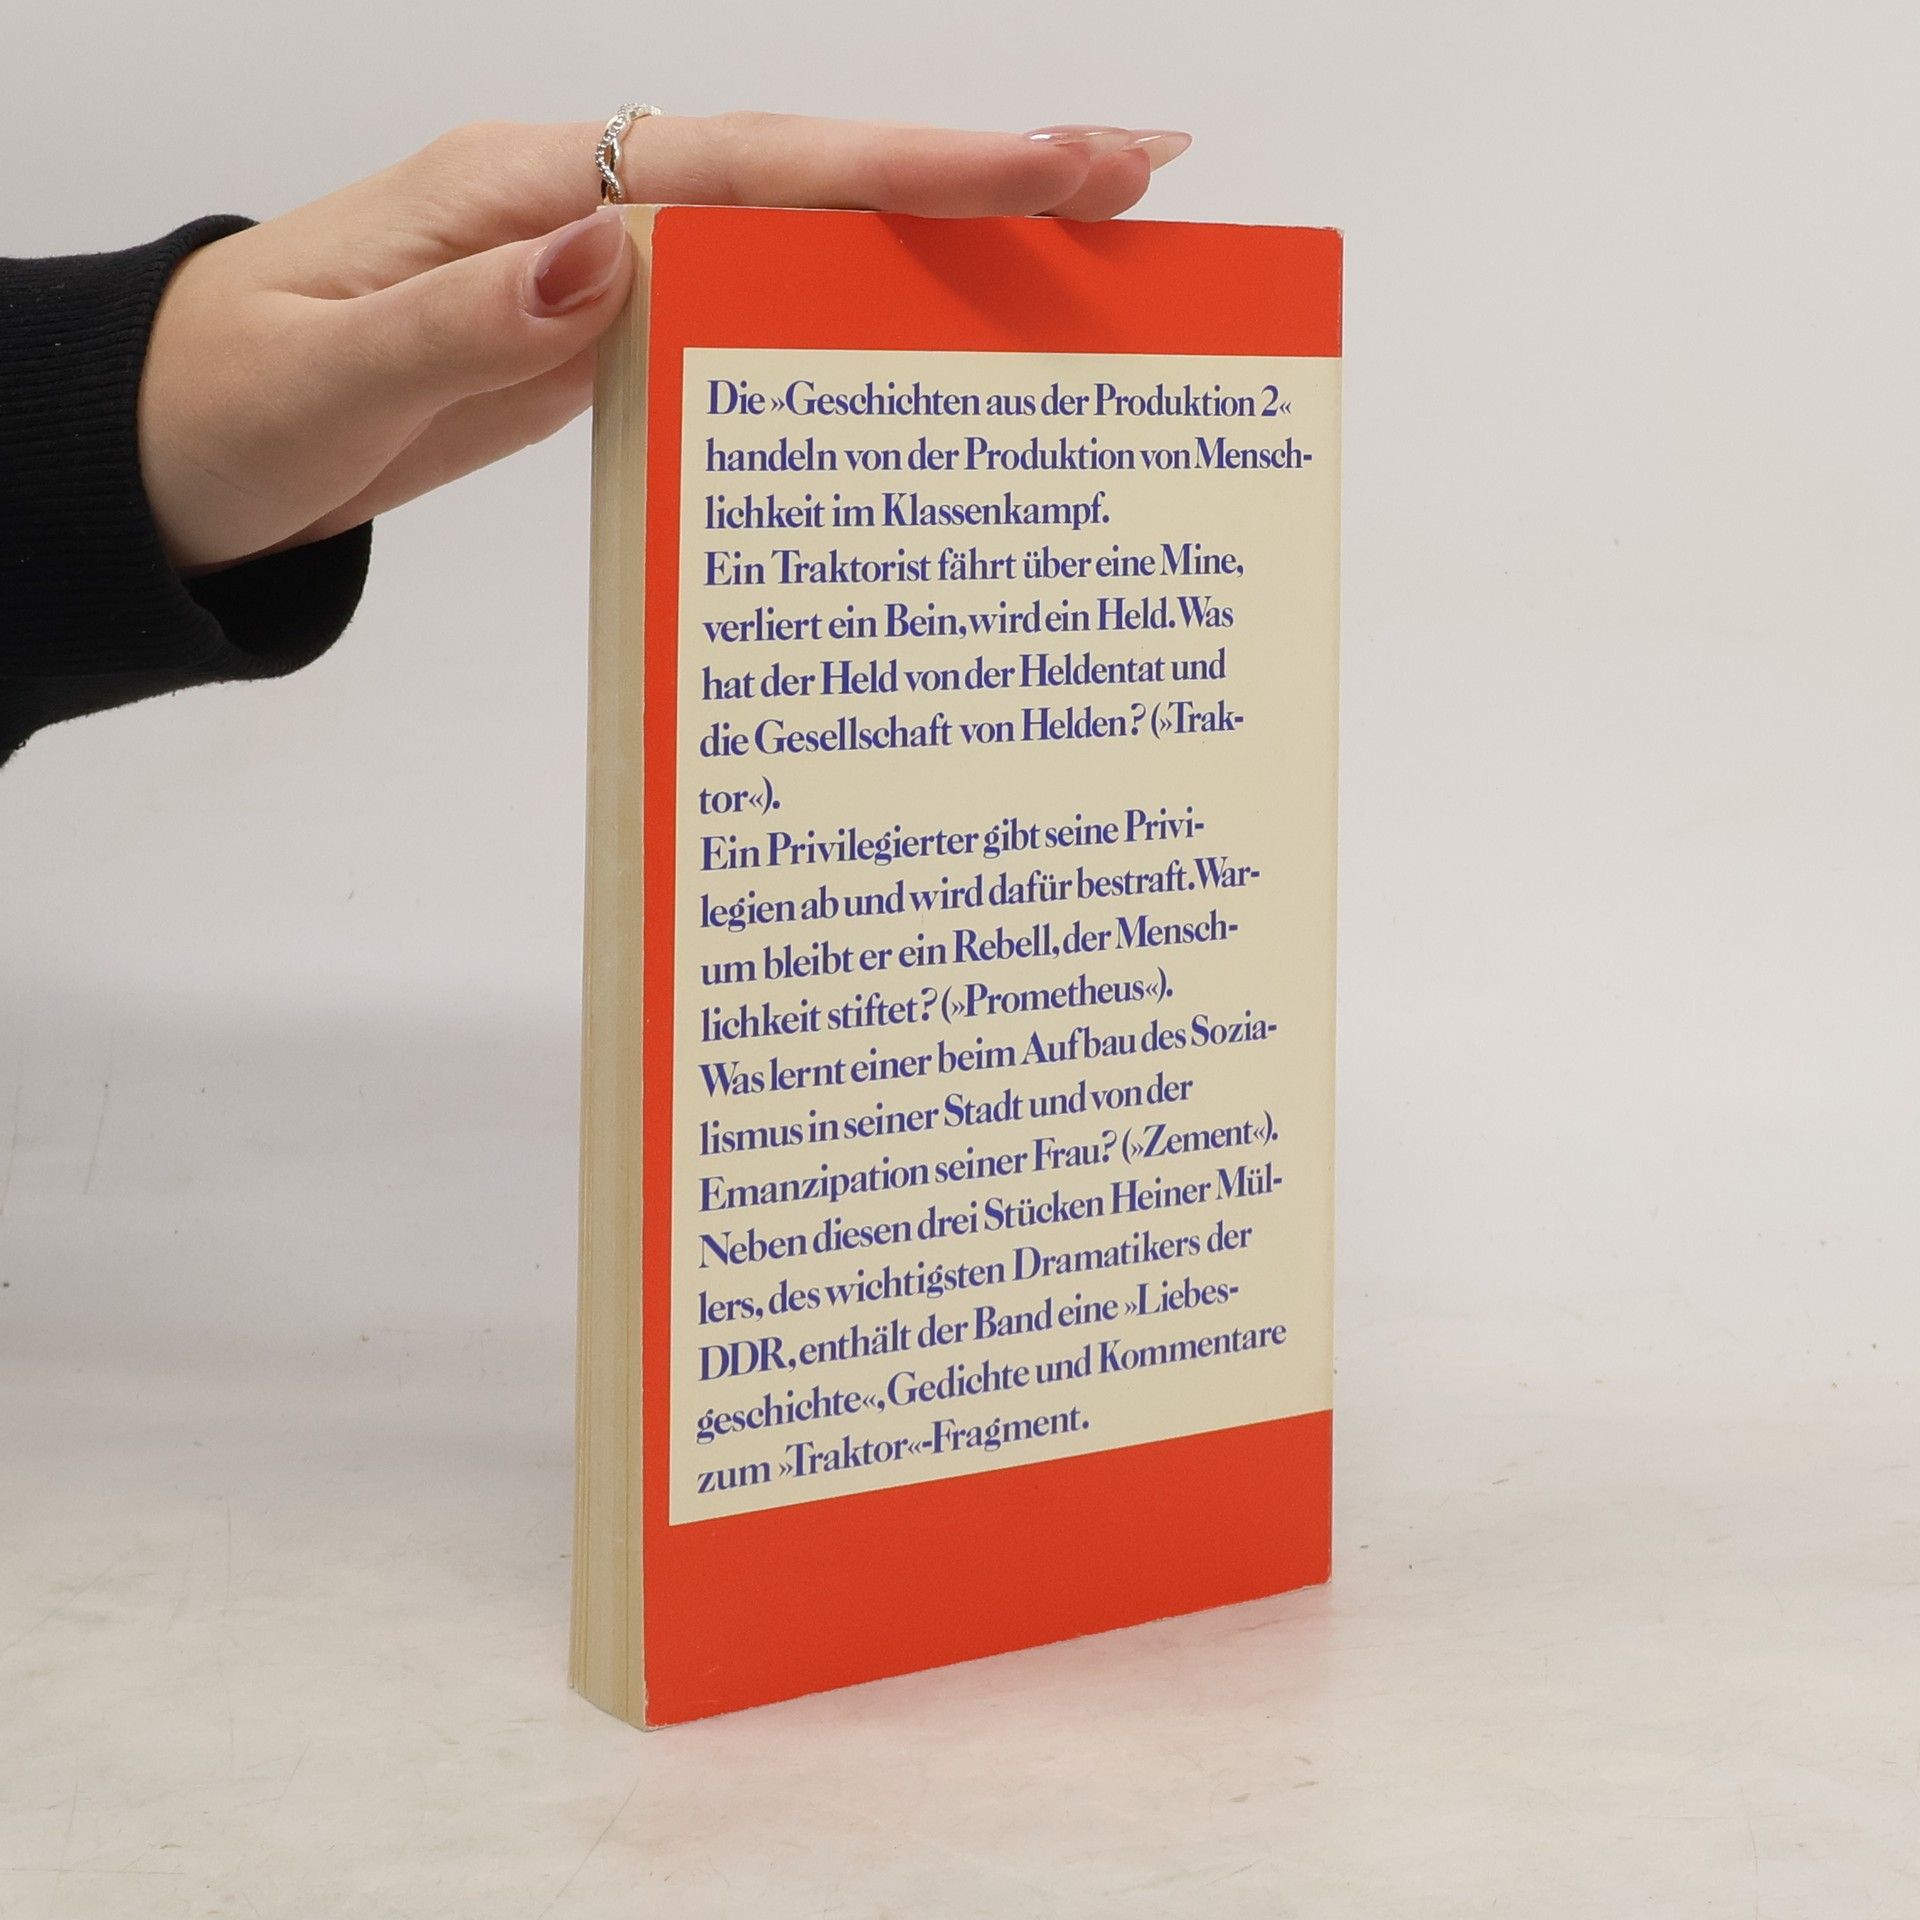 Die »Geschichten aus der Produktion 2«
handeln von der Produktion von Mensch-
lichkeit im Klassenkampf.
Ein Traktorist fährt über eine Mine,
verliert ein Bein, wird ein Held. Was
hat der Held von der Heldentat und
die Gesellschaft von Helden? (»Trak-
tor«).
Ein Privilegierter gibt seine Privi-
legien ab und wird dafür bestraft. War-
um bleibt er ein Rebell, der Mensch-
lichkeit stiftet? (»Prometheus«).
Was lernt einer beim Aufbau des Sozia-
lismus in seiner Stadt und von der
Emanzipation seiner Frau? (»Zement«).
Neben diesen drei Stücken Heiner Mül-
lers, des wichtigsten Dramatikers der
DDR, enthält der Band eine »Liebes-
geschichte«, Gedichte und Kommentare
zum »Traktor«-Fragment.